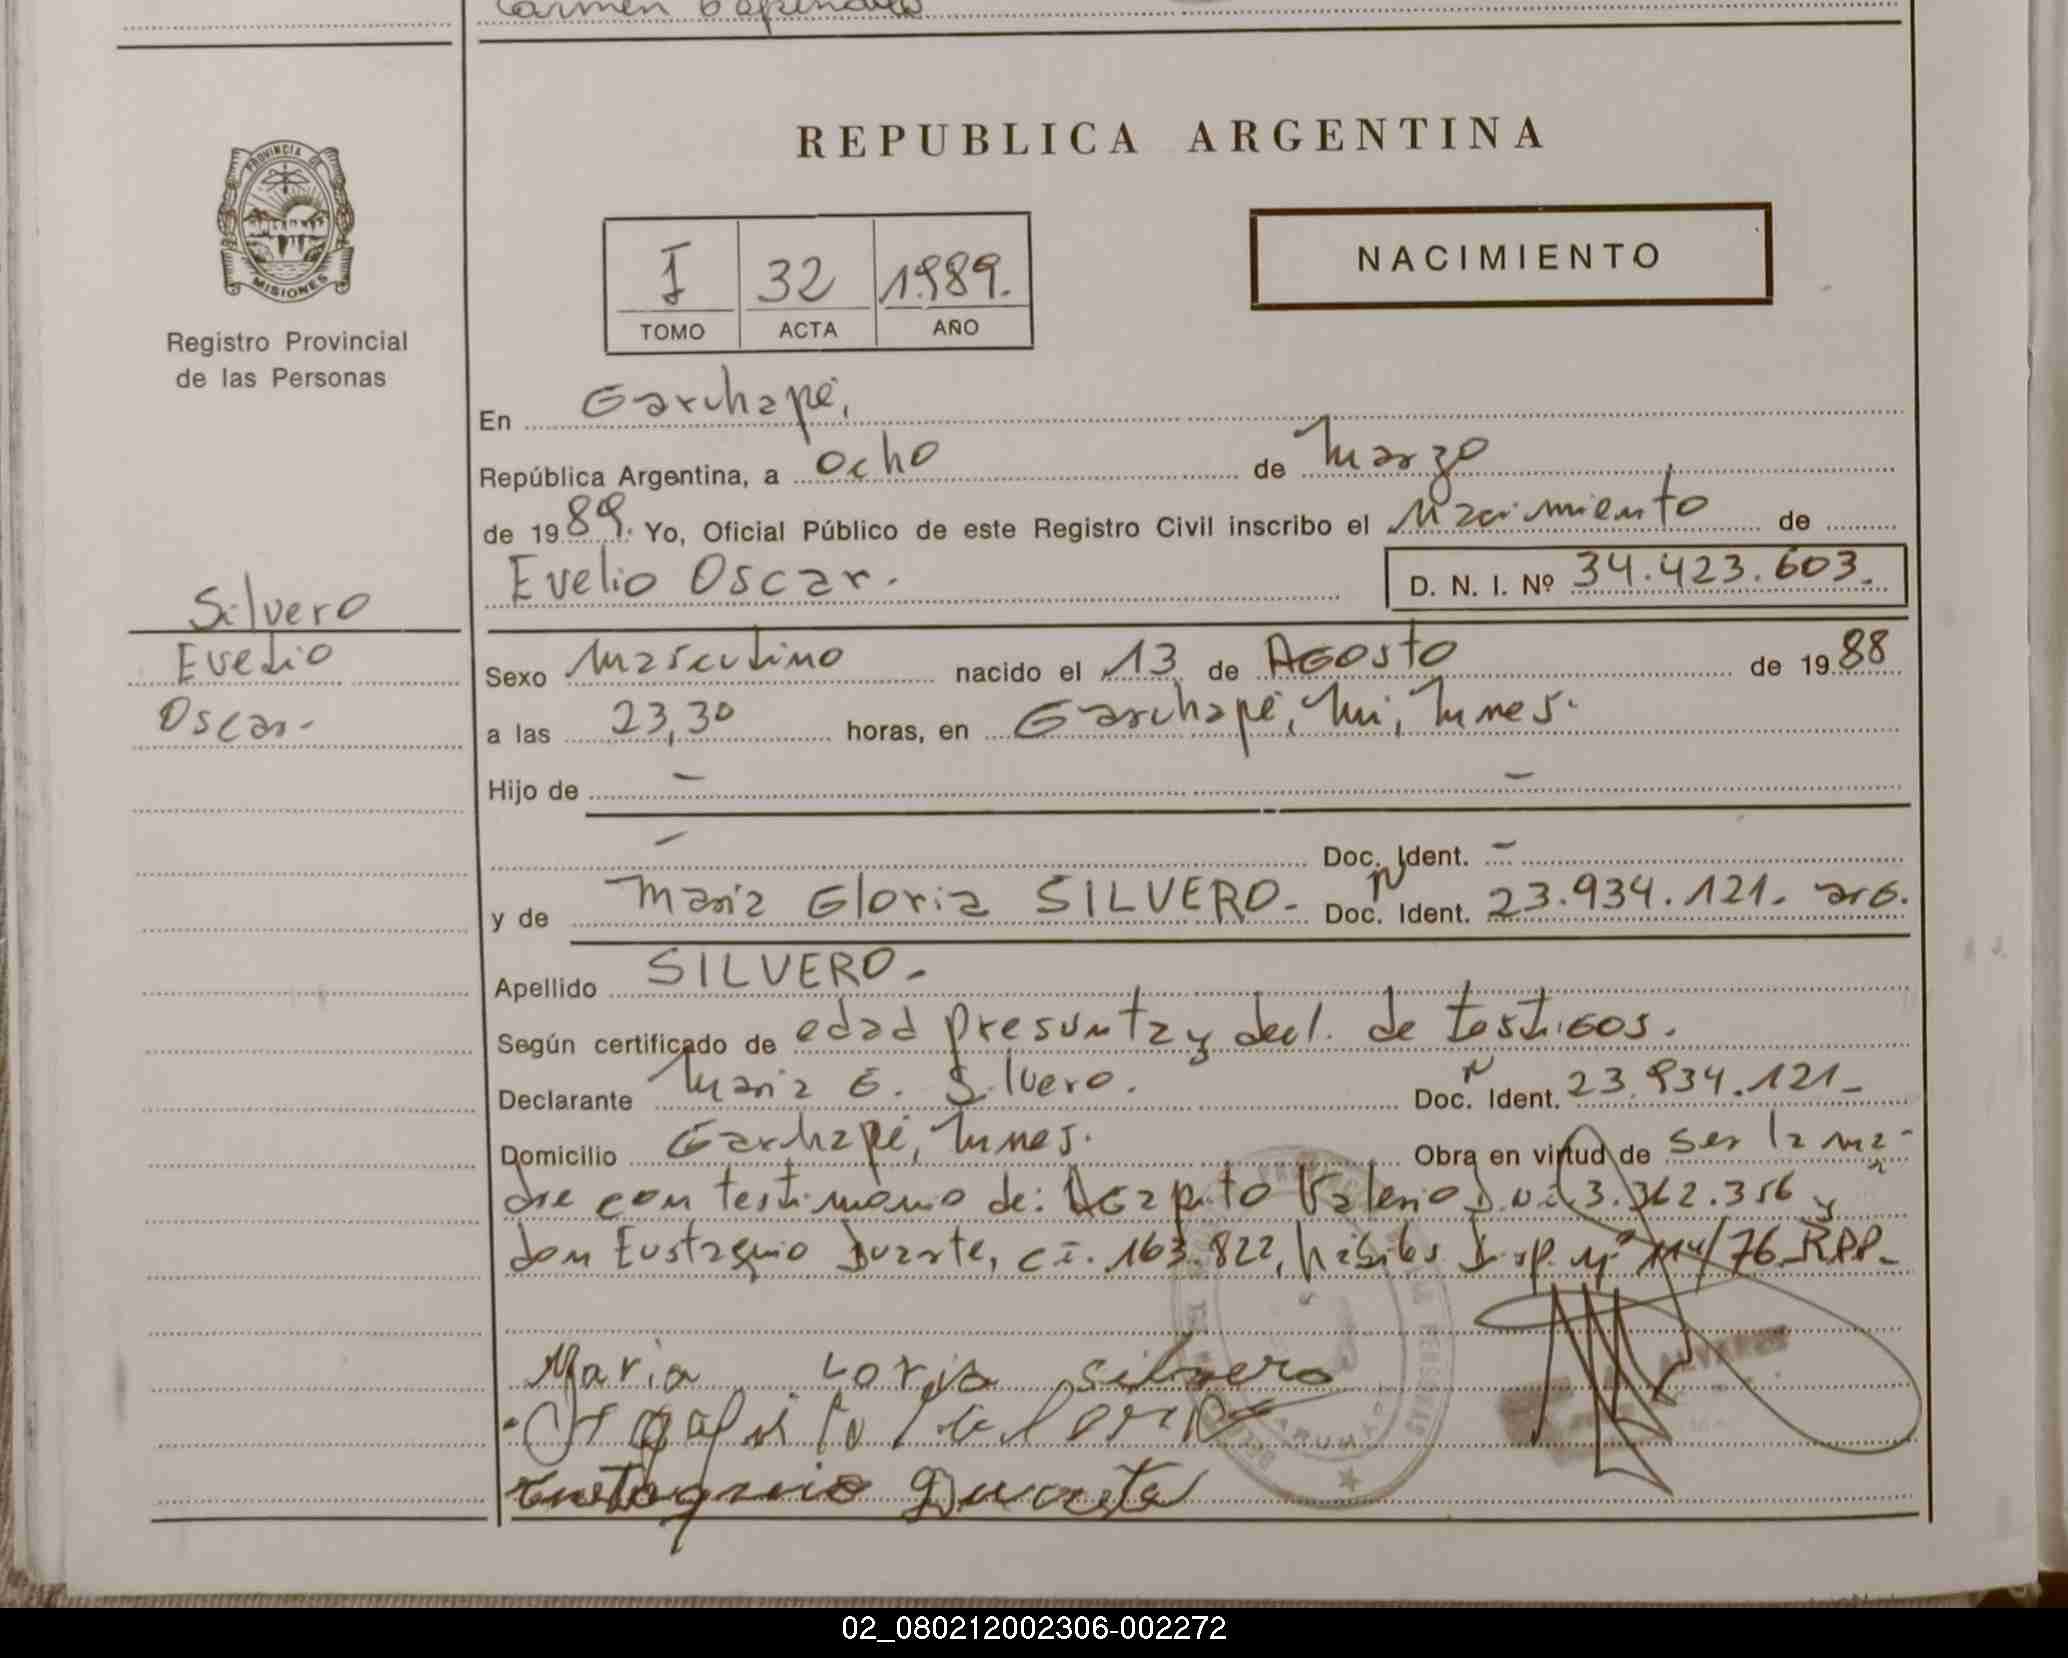 Carmen
REPUBLICA ARGENTINA
PROVINCIA DE
MISIONES
Registro Provincial
de las Personas
I 32 1989.
TOMO ACTA AÑO
NACIMIENTO
En Garuhapé,
República Argentina, a ocho de Marzo
de 1989. Yo, Oficial Público de este Registro Civil inscribo el Nacimiento de
Evelio Oscar. D. N. I. Nº 34.423.603.
Silvero
Evelio
Oscar.-
Sexo Masculino nacido el 13 de Agosto de 1988
a las 23,30 horas, en Garuhapé, Mi, Mnes.
Hijo de - -
- Doc. Ident. -
y de Maria Gloria SILVERO.- Doc. N Ident. 23.934.121. arg.
Apellido SILVERO.-
Según certificado de edad presunta y decl. de testigos.
Declarante Maria G. Silvero. Doc. N Ident. 23.934.121-
Domicilio Garuhapé, Mnes. Obra en virtud de ser la ma-
dre con testimonio de: Agapito Valerio D.N.I 3.362.356 y
don Eustaquio Duarte, C.I. 163.822, hábiles Disp. Nº 114/76 RPP.-
Maria Loria silvero
Agapito Valerio
Eustaquio Duarte
02_080212002306-002272